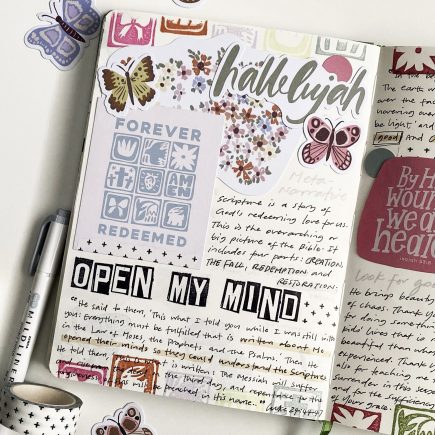 hallelujah
FOREVER
AMEN
REDEEMED
Meta-
narrative
Scripture is a story of
God's redeeming love for us.
This is the overarching or
big picture of the Bible. It
includes four parts: CREATION,
THE FALL, REDEMPTION and
RESTORATION.
OPEN MY MIND
"He said to them, 'This what I told you while I was still with
you: Everything must be fulfilled that is written about me
in the Law of Moses, the Prophets, and the Psalms. Then He
opened their minds so they could understand the Scriptures.
He told them, is written: The messiah will suffer
the third day, and repentance
preached in his name.
Luke 24:44-47
The earth w
over the fac
hovering over
be light,' and
good
By H
woun
we a
heale
isaiah 53:5
Look for good
He brings beauty
of chaos. Thank y
for doing somethin
beautiful than wha
experienced. Thank y
also for teaching me
surrender in this seaso
the sufficiency
of your grace.
MILDLINER